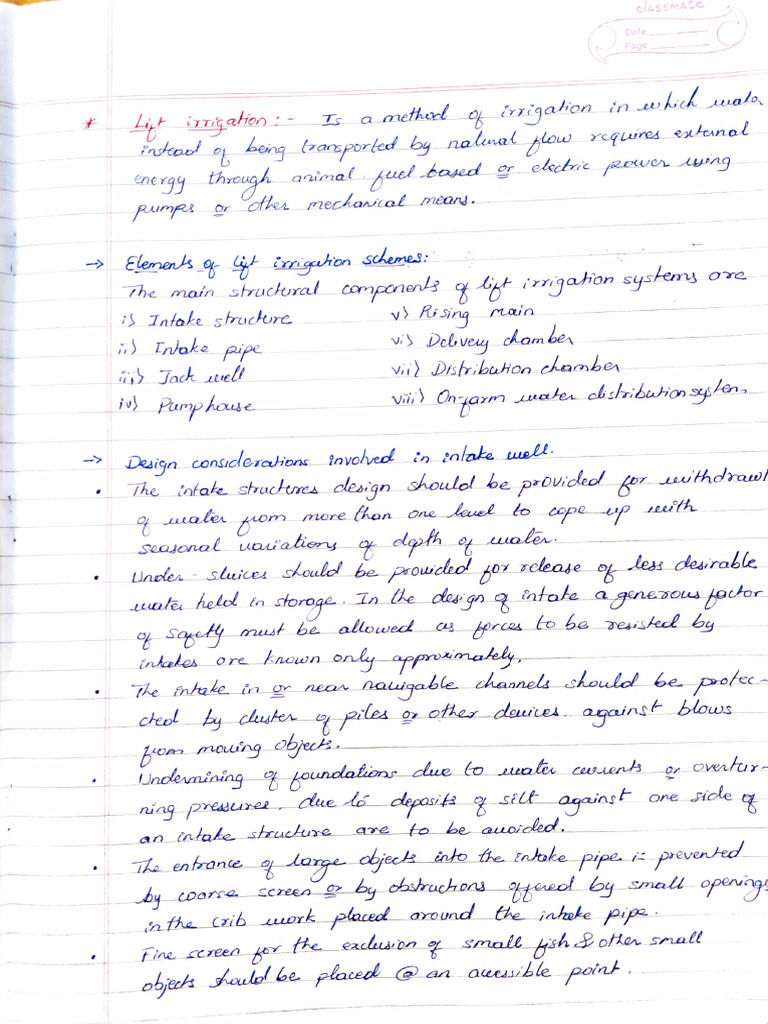 classmate
Date
Page
* Lift irrigation:- Is a method of irrigation in which water
instead of being transported by natural flow requires external
energy through animal, fuel based or electric power using
pumps or other mechanical means.
→ Elements of lift irrigation schemes:
The main structural components of lift irrigation systems are
i) Intake structure
ii) Intake pipe
iii) Jack well
iv) Pumphouse
v) Rising main
vi) Delivery chamber
vii) Distribution chamber
viii) On-farm water distribution system.
→ Design considerations involved in intake well.
• The intake structures design should be provided for withdrawl
of water from more than one level to cope up with
seasonal variations of depth of water.
• Under-sluices should be provided for release of less desirable
water held in storage. In the design of intake a generous factor
of safety must be allowed as forces to be resisted by
intakes are known only approximately.
• The intake in or near navigable channels should be prote-
cted by cluster of piles or other devices. against blows
from moving objects.
• Undermining of foundations due to water currents or overtur-
ning pressures, due to deposits of silt against one side of
an intake structure are to be avoided.
• The entrance of large objects into the intake pipe is prevented
by coarse screen or by obstructions offered by small openings
in the crib work placed around the intake pipe.
• Fine screen for the exclusion of small fish & other small
objects should be placed @ an acessible point.